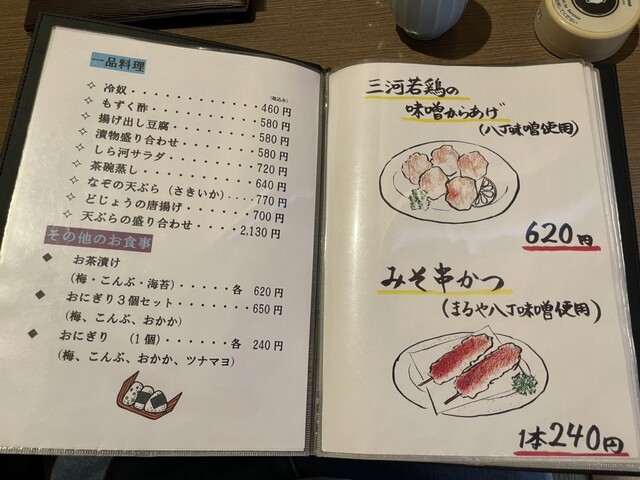 一品料理
(税込み)
✧ 冷奴・・・・・・・・・・・・460円
✧ もずく酢・・・・・・・・・・580円
✧ 揚げ出し豆腐・・・・・・・・580円
✧ 漬物盛り合わせ・・・・・・・580円
✧ しら河サラダ・・・・・・・・720円
✧ 茶碗蒸し・・・・・・・・・・640円
✧ なぞの天ぷら（さきいか）・・・・770円
✧ どじょうの唐揚げ・・・・・・700円
✧ 天ぷらの盛り合わせ・・・・2,130円
その他のお食事
◆ お茶漬け
(梅・こんぶ・海苔)・・・・・各 620円
◆ おにぎり３個セット・・・・・・・650円
(梅、こんぶ、おかか)
◆ おにぎり (1個)・・・・・・各 240円
(梅、こんぶ、おかか、ツナマヨ)
三河若鶏の
味噌からあげ
(八丁味噌使用)
620円
みそ串かつ
(まるや八丁味噌使用)
1本240円